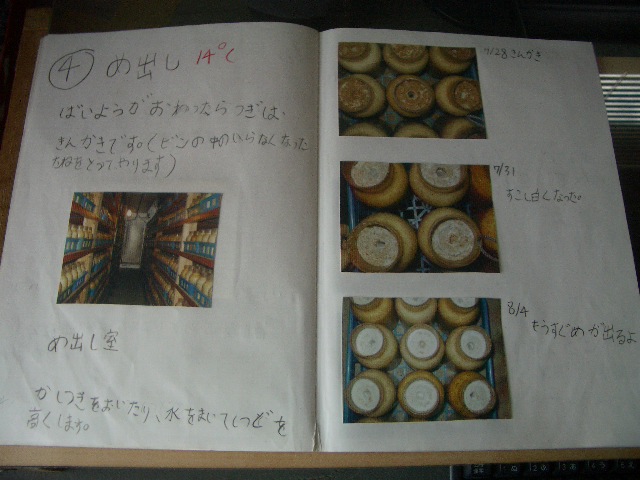 ④ め出し 14℃
ばいようがおわったらつぎは、
きんかきです。(ビンの中のいらなくなった
たねをとってやります)
め出し室
かしつきをおいたり、水をまいてしつどを
高くします。
7/28 きんかき
7/31
すこし白くなった。
8/4
もうすぐめが出るよ